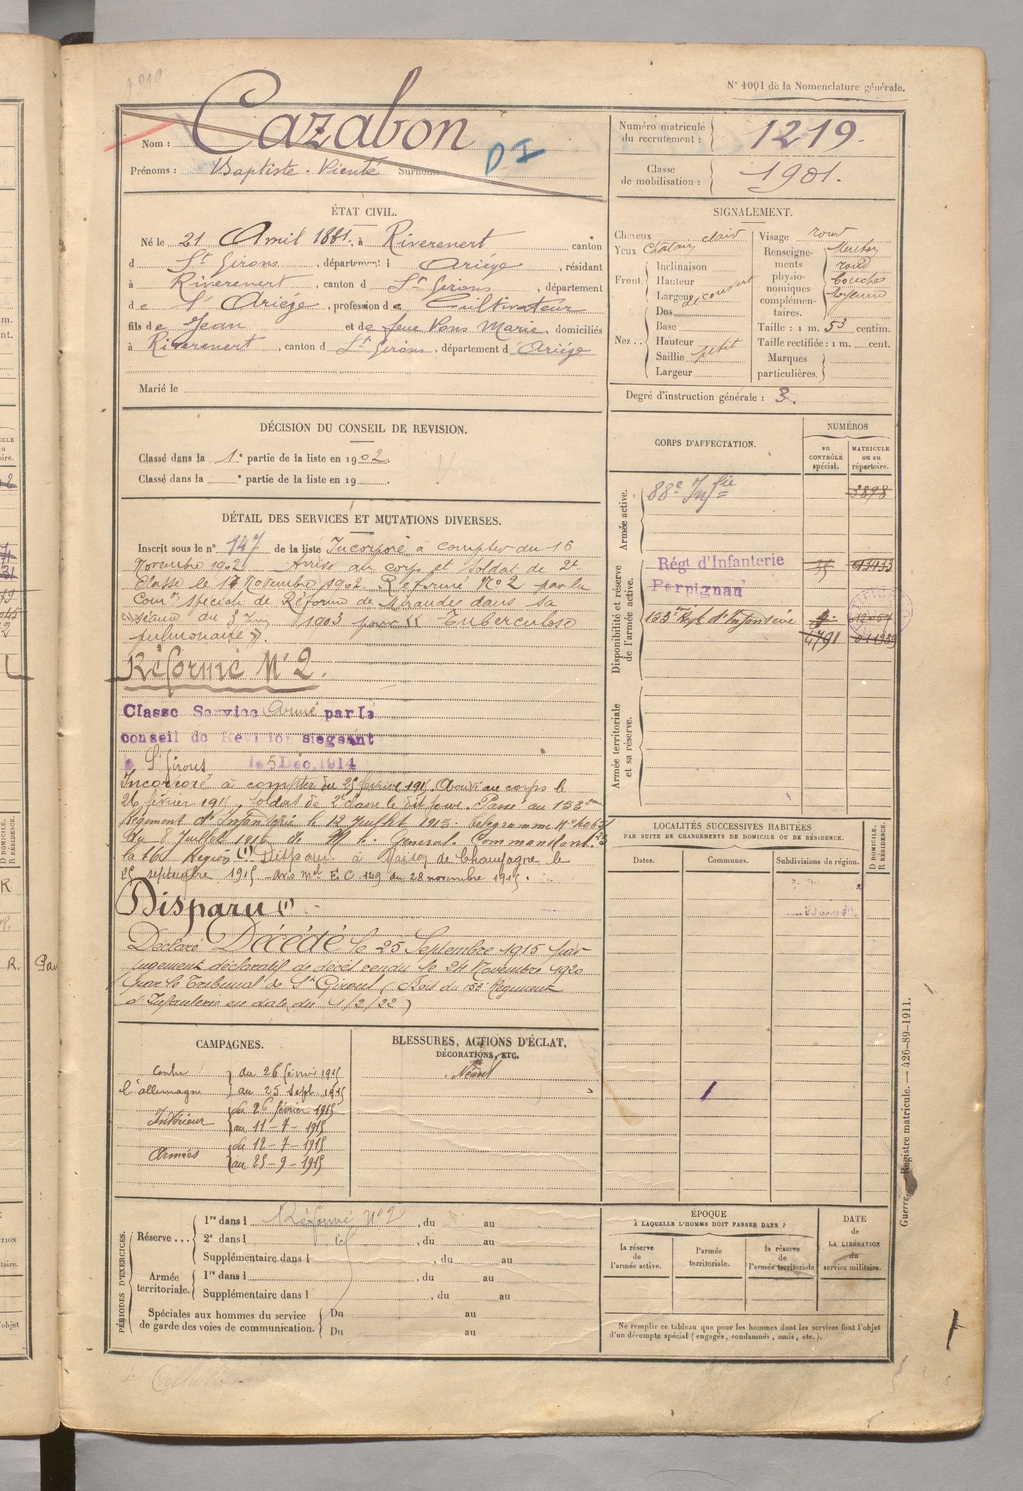 N° 1001 de la Nomenclature générale.
Nom : Cazabon
D I
Prénoms : Baptiste Surnoms :
Numéro matricule du recrutement : 1219.
Classe de mobilisation : 1901.
ÉTAT CIVIL.
Né le 21 Avril 1881, à Riverenert canton
d St Girons, département d Ariége, résidant
à Riverenert, canton d St Girons, département
de l'Ariége, profession de Cultivateur
fils de Jean et de feue Pons Marie, domiciliés
à Riverenert, canton d St Girons, département d Ariége
Marié le
SIGNALEMENT.
Cheveux clair
Yeux Chatain
Visage rond
Front. Inclinaison
Hauteur
Largeur découvert
Nez.. Dos
Base
Hauteur
Saillie petit
Largeur
Renseignements physionomiques complémentaires. Menton rond bouche moyenne
Taille : 1 m. 53 centim.
Taille rectifiée : 1 m. cent.
Marques particulières.
Degré d'instruction générale : 3.
DÉCISION DU CONSEIL DE REVISION.
Classé dans la 1e partie de la liste en 1902.
Classé dans la e partie de la liste en 19
DÉTAIL DES SERVICES ET MUTATIONS DIVERSES.
Inscrit sous le n° 147 de la liste Incorporé à compter du 16
Novembre 1902. Arrivé au corps et soldat de 2e
Classe le 17 Novembre 1902 Réformé N° 2 par la
Comon spéciale de Réforme de dans sa
séance du 3 1903 pour « Tuberculose
pulmonaire ».
Réformé N° 2.
Classé Service Armé par le
conseil de Révision siégeant
à St Girons le 5 Déc. 1914
Incorporé à compter du 25 février 1915. Arrivé au corps le
26 février 1915. soldat de 2e classe le dit jour. Passé au 153ème
Régiment d'Infanterie le 12 Juillet 1915. telegramme N°
du 8 Juillet 1915 de Mr le General Commandant
la 16e Région (1) Disparu à de Champagne le
25 septembre 1915 avis mel E.C. 149 du 28 novembre 1915.
Disparu (1)
Déclaré Décédé le 25 Septembre 1915 par
jugement déclaratif de décès rendu le 24 Novembre 1920
par le Tribunal de St Girons (Avis du 153e Régiment
d'Infanterie en date du 1/2/22)
CORPS D'AFFECTATION.
NUMÉROS
au CONTRÔLE spécial.
MATRICULE ou au répertoire.
Armée active.
88e Infie 3898
Disponibilité et réserve de l'armée active.
Régt d'Infanterie
Perpignan
153ème Regt d'Infanterie
4791
Armée territoriale et sa réserve.
LOCALITÉS SUCCESSIVES HABITÉES
PAR SUITE DE CHANGEMENTS DE DOMICILE OU DE RÉSIDENCE.
Dates.
Communes.
Subdivisions de région.
D DOMICILE.
R RÉSIDENCE.
CAMPAGNES.
Contre l'allemagne du 26 février 1915
au 25 Sept. 1915
Intérieur du 26 février 1915
au 11-7-1915
Armées du 12-7-1915
au 25-9-1915
BLESSURES, ACTIONS D'ÉCLAT,
DÉCORATIONS, ETC.
Néant
PÉRIODES D'EXERCICES.
Réserve... 1re dans l Réformé N°2, du au
2e dans l id, du au
Supplémentaire dans l, du au
Armée territoriale. 1re dans l, du au
Supplémentaire dans l, du au
Spéciales aux hommes du service
de garde des voies de communication. Du au
Du au
ÉPOQUE
À LAQUELLE L'HOMME DOIT PASSER DANS :
la réserve de l'armée active.
l'armée territoriale.
la réserve de l'armée territoriale
DATE
de
LA LIBÉRATION
du
service militaire.
Ne remplir ce tableau que pour les hommes dont les services font l'objet
d'un décompte spécial (engagés, condamnés, omis, etc.).
Guerre. — Registre matricule. — 426-89-1911.